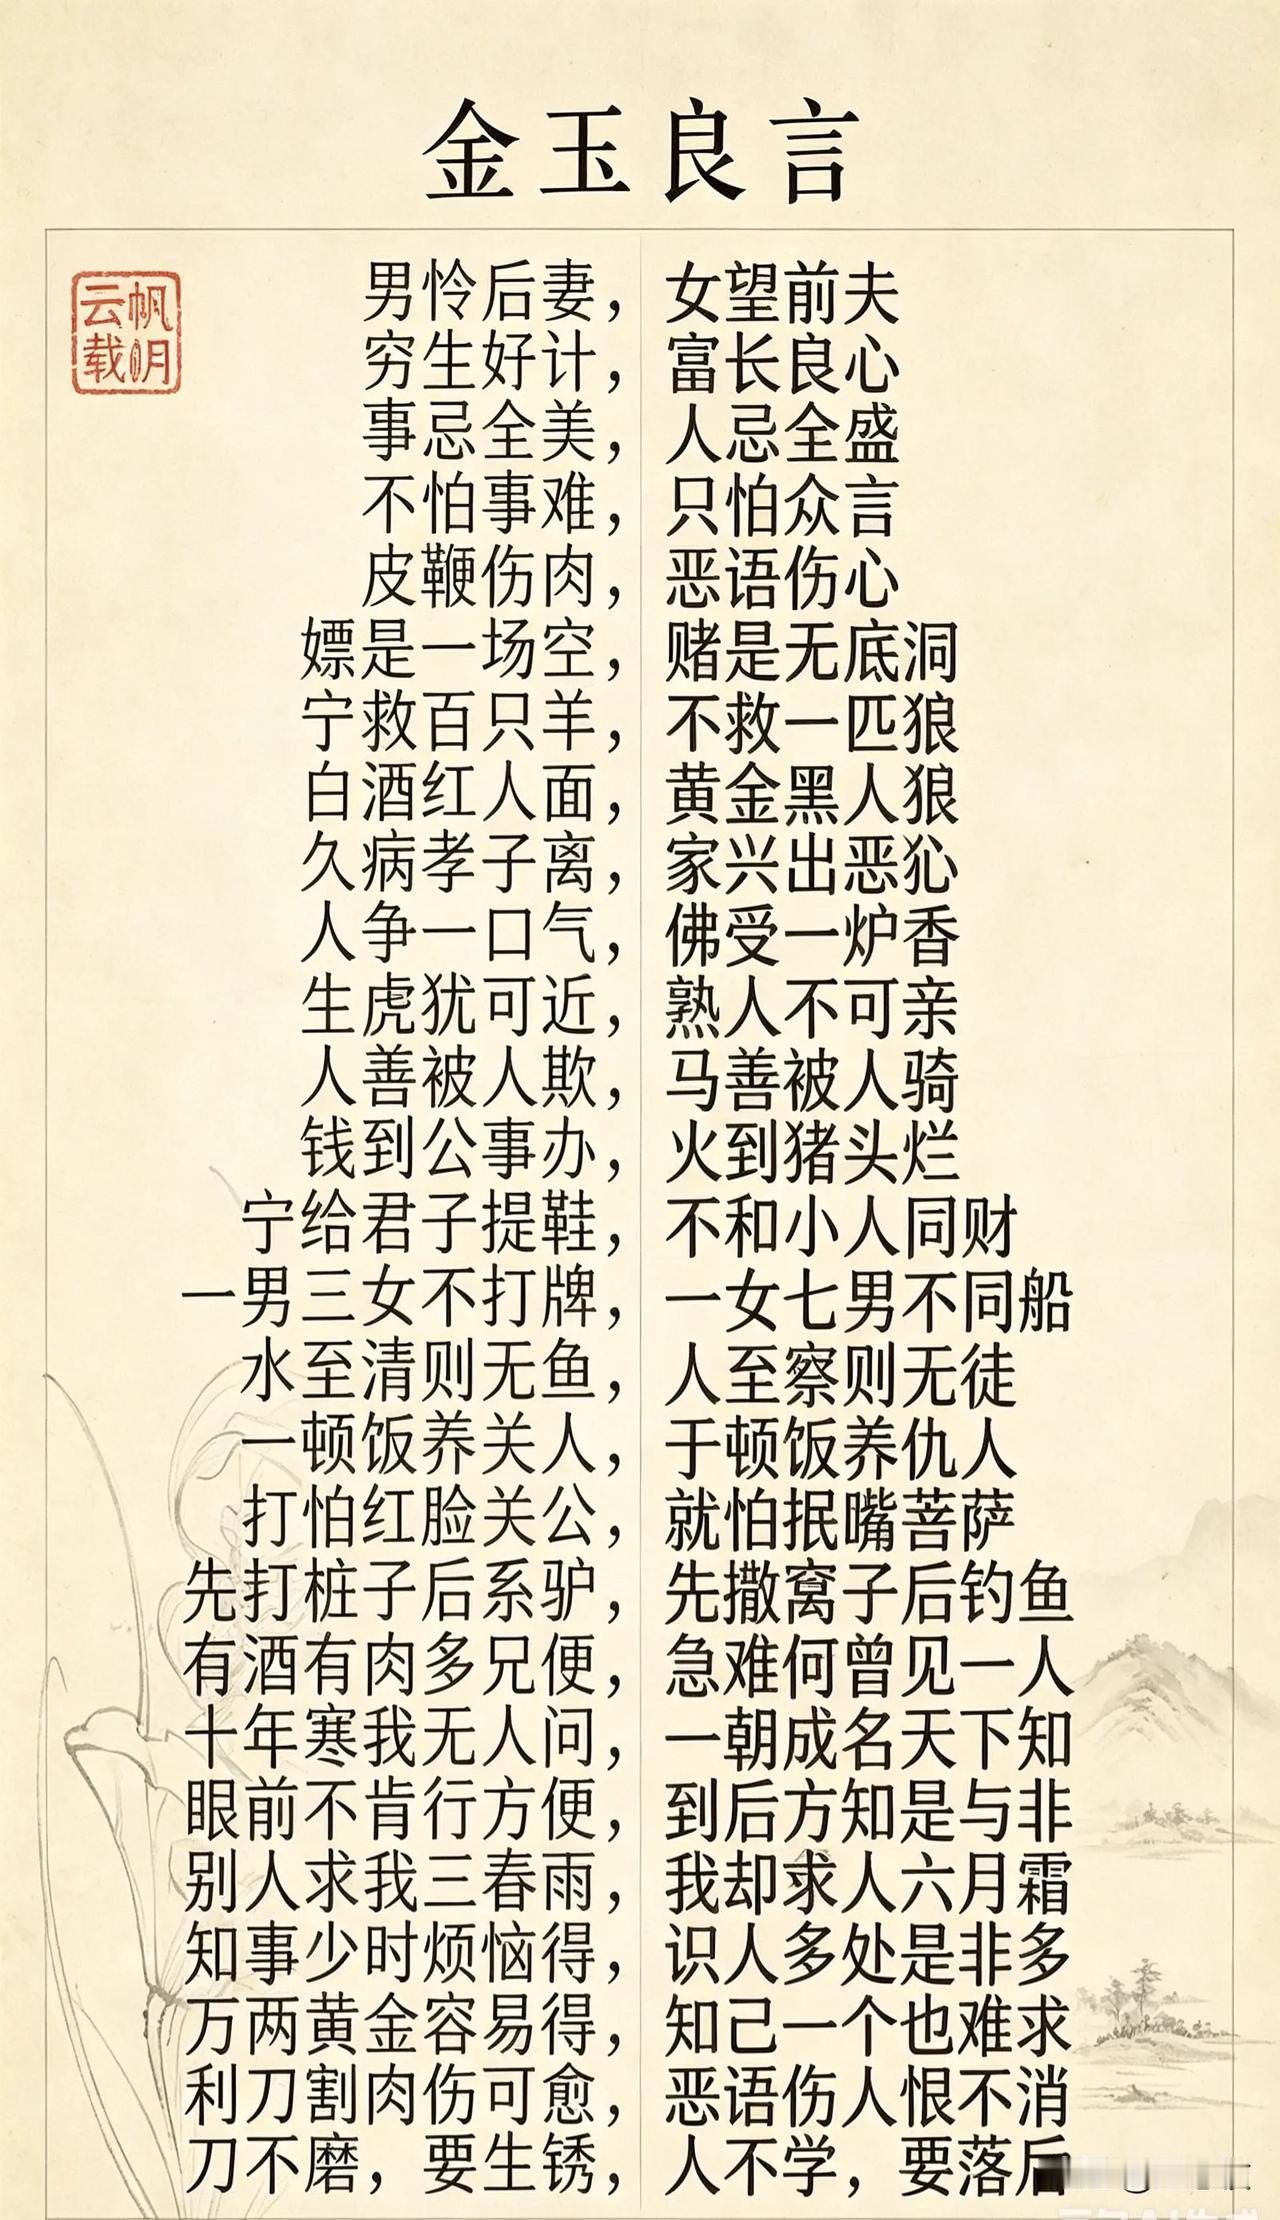 金玉良言
云帆
载明
男怜后妻，女望前夫
穷生好计，富长良心
事忌全美，人忌全盛
不怕事难，只怕众言
皮鞭伤肉，恶语伤心
嫖是一场空，赌是无底洞
宁救百只羊，不救一匹狼
白酒红人面，黄金黑人狼
久病孝子离，家兴出恶犯
人争一口气，佛受一炉香
生虎犹可近，熟人不可亲
人善被人欺，马善被人骑
钱到公事办，火到猪头烂
宁给君子提鞋，不和小人同财
一男三女不打牌，一女七男不同船
水至清则无鱼，人至察则无徒
一顿饭养关人，于顿饭养仇人
打怕红脸关公，就怕抿嘴菩萨
先打桩子后系驴，先撒窝子后钓鱼
有酒有肉多兄便，急难何曾见一人
十年寒我无人问，一朝成名天下知
眼前不肯行方便，到后方知是与非
别人求我三春雨，我却求人六月霜
知事少时烦恼得，识人多处是非多
万两黄金容易得，知己一个也难求
利刀割肉伤可愈，恶语伤人恨不消
刀不磨，要生锈，人不学，要落后